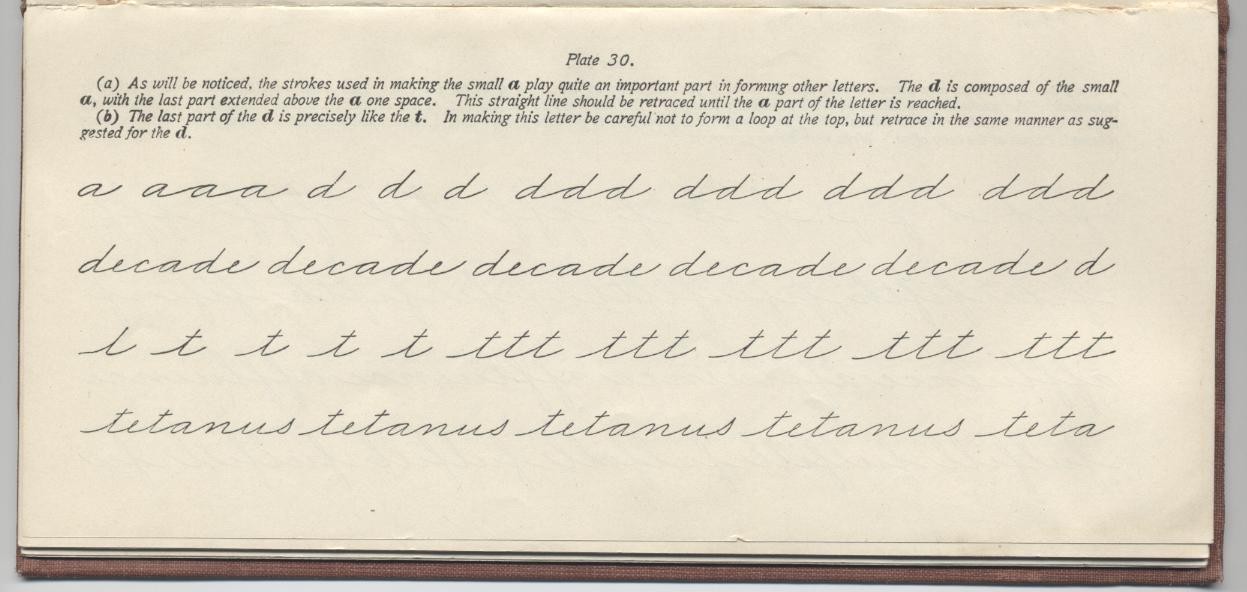 Plate 30.
(a) As will be noticed, the strokes used in making the small a play quite an important part in forming other letters. The d is composed of the small
a, with the last part extended above the a one space. This straight line should be retraced until the a part of the letter is reached.
(b) The last part of the d is precisely like the t. In making this letter be careful not to form a loop at the top, but retrace in the same manner as sug-
gested for the d.
a aaa d d d ddd ddd ddd ddd
decade decade decade decade decade d
l t t t t ttt ttt ttt ttt ttt
tetanus tetanus tetanus tetanus teta